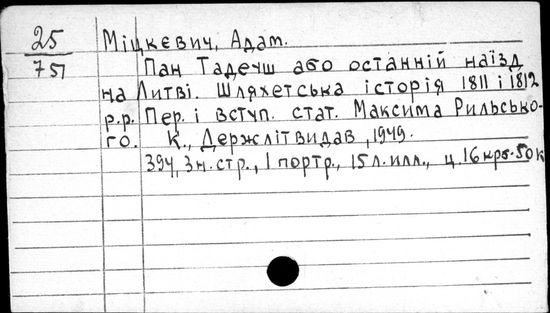 25 Міцкєвич, Адам.
751 Пан Тадеуш або останній наїзд
на Литві. Шляхетська історія 1811 і 1812
р.р. Пер. і вступ. стат. Максима Рильсько-
го. К., Держлітвидав, 1949.
394, 3 н. стр., 1 портр., 15 л. илл., ц. 16 крб. 50 к